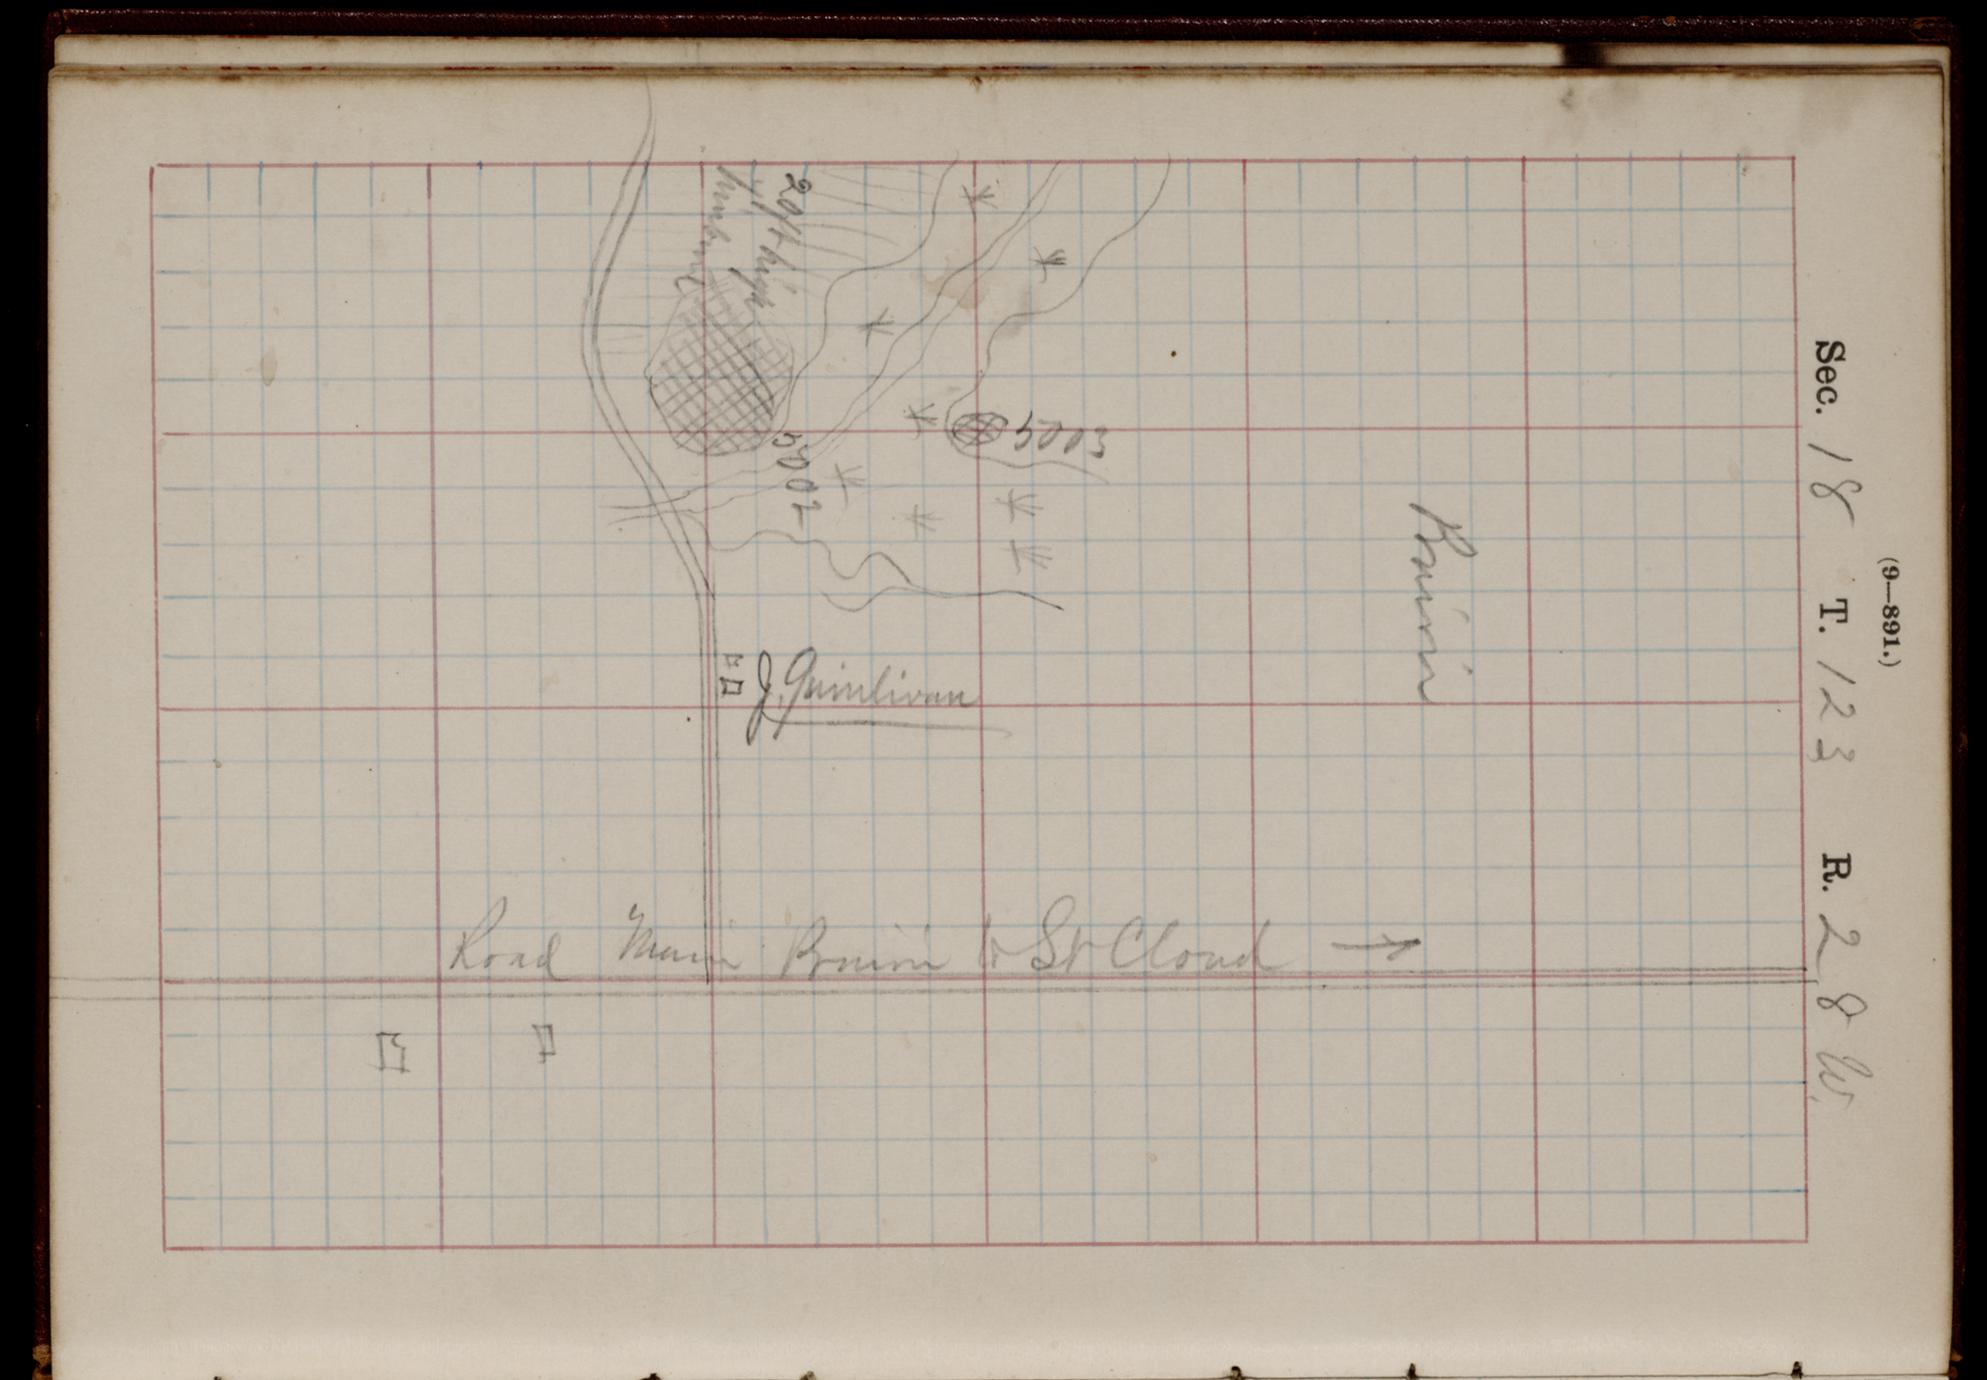 (9—891.)
Sec. 18 T. 123 R. 28 W.
20 ft high
5003
5002
Prairie
J. Quinlivan
Road Main Prairie to St Cloud →